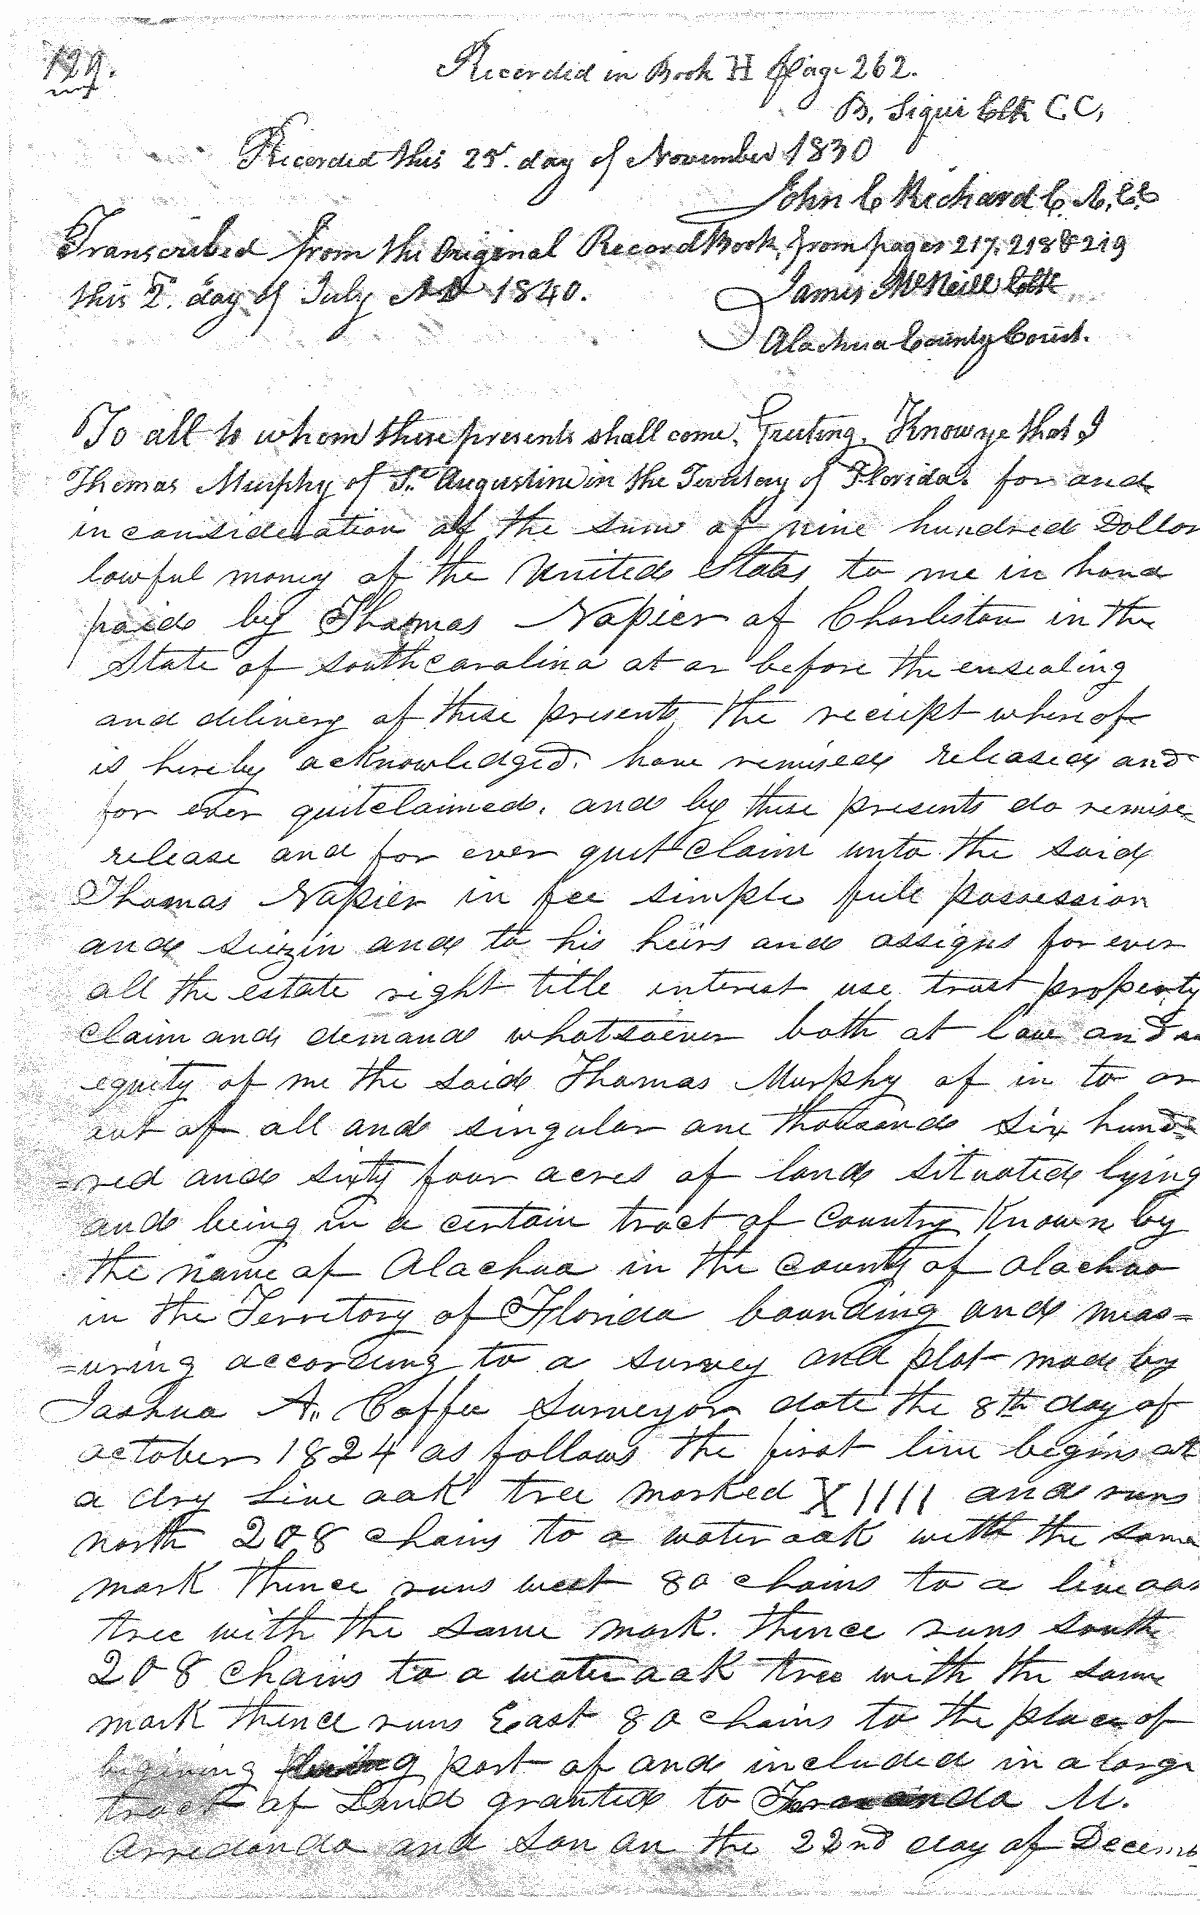 129.
Recorded in Book H Page 262.
B. Sigui Clk C.C,
Recorded this 25. day of November 1830
John C Richard C. A. C.C
Transcribed from the Original Record Book, from pages 217. 218 & 219
this 2. day of July AD 1840.
James McNeill Clk
Alachua County Court.
To all to whom these presents shall come, Greeting. Know ye that I
Thomas Murphy of St. Augustine in the Territory of Florida. for and
in consideration of the sum of nine hundred Dollar
lawful money of the United States to me in hand
paid by Thomas Napier of Charleston in the
State of South carolina at or before the ensealing
and delivery of these presents, the receipt whereof
is hereby acknowledged. have remised released and
for ever quitclaimed. and by these presents do remise
release and for ever quit claim unto the said
Thomas Napier in fee simple full possession
and siezin and to his heirs and assigns for ever
all the estate right title interest use trust property
claim and demand whatsoever both at law and in
equity of me the said Thomas Murphy of in to or
out of all and singular one thousand six hund=
=red and sixty four acres of land situated lying
and being in a certain tract of Country Known by
the name of Alachua in the County of Alachua
in the Territory of Florida bounding and meas=
=uring according to a survey and plot made by
Joshua A. Coffee Surveyor date the 8th day of
october 1824 as follows the first line begins at
a dry Live oak tree marked X IIII and runs
north 208 chains to a water oak with the same
mark thence runs west 80 chains to a live oak
tree with the same mark. thence runs south
208 chains to a water oak tree with the same
mark thence runs East 80 chains to the place of
begining being part of and included in a large
tract of Land granted to Fernando M.
Arredondo and Son on the 22nd day of Decemb